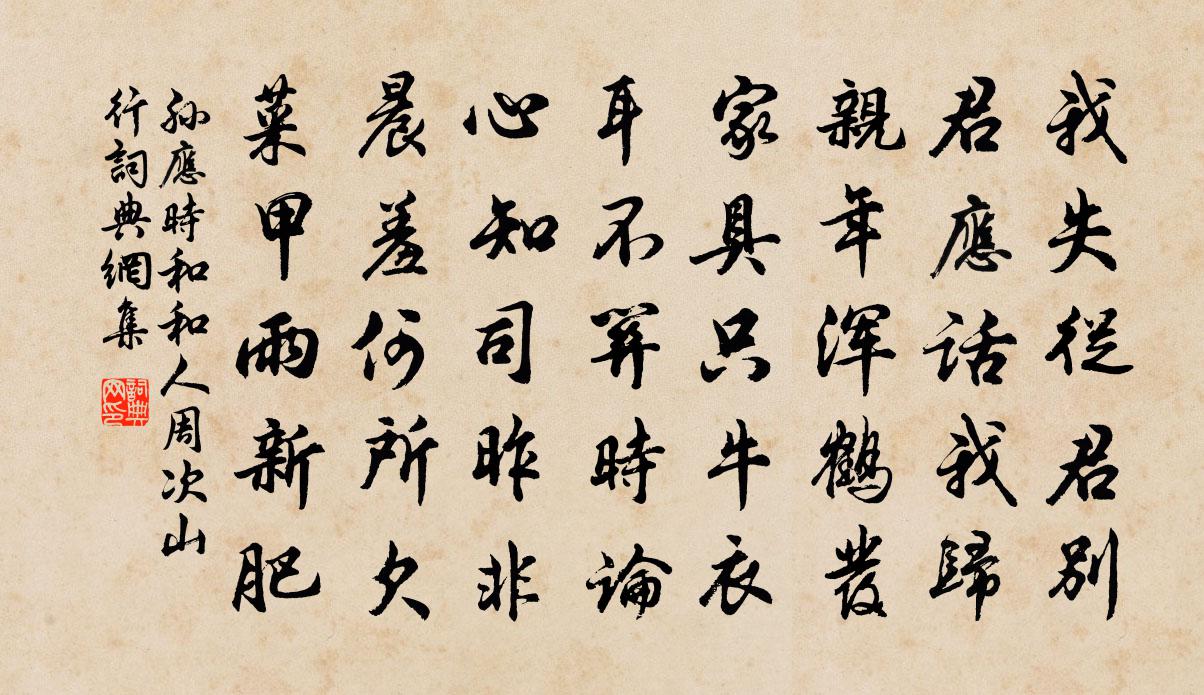 我失從君別
君應話我歸
親年渾鶴發
家具只牛衣
耳不筭時論
心知司昨非
晨羞何所欠
菜甲雨新肥
孫應時和和人周次山
行詞典網集
詞典网印